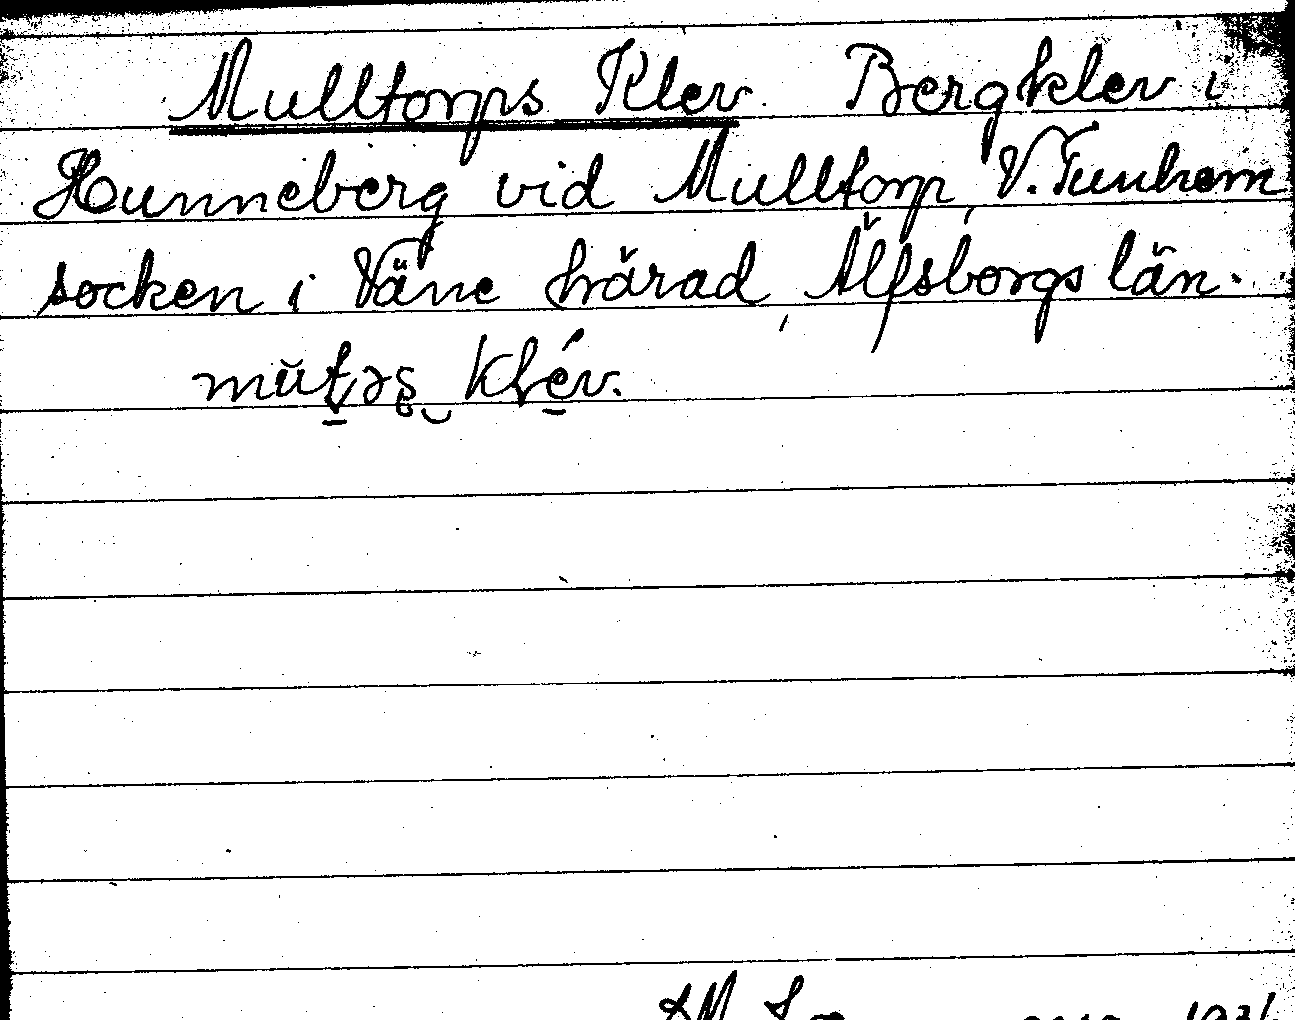 Mulltorps Klev. Bergklev i
Hunneberg vid Mulltorp, V. Tunhem
socken i Väne härad, Älfsborgs län.
klév.